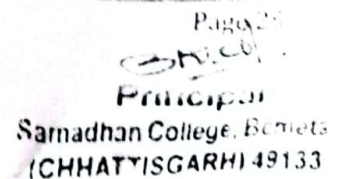 Page 28
Principal
Samadhan College, Bemeta
(CHHATTISGARH) 49133